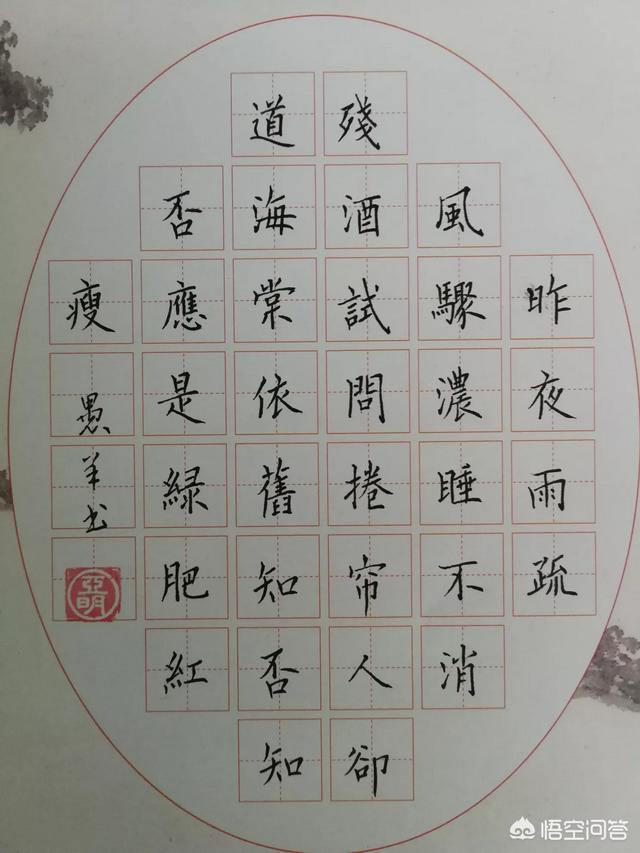 昨夜雨疏
風驟濃睡不消
殘酒試問捲帘人卻
道海棠依舊知否知
否應是綠肥紅
瘦
愚羊书
亞明
悟空问答